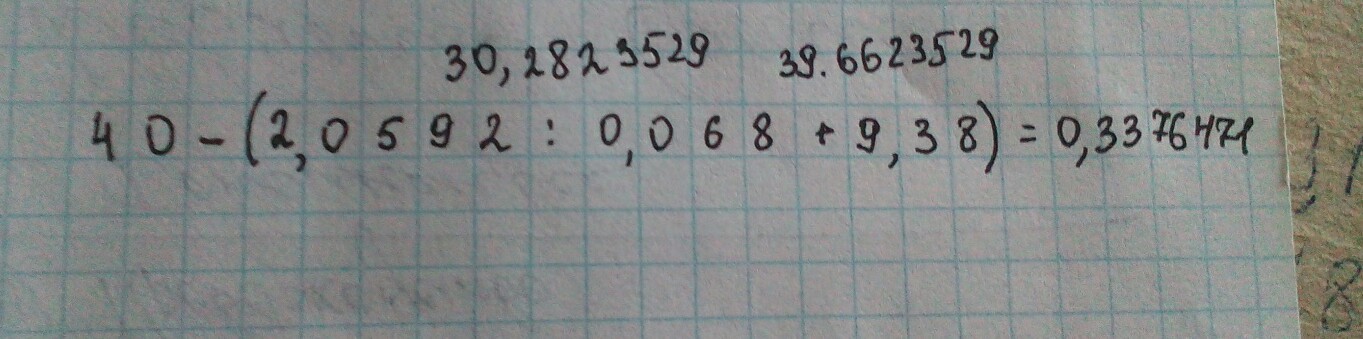 30,2823529 39.6623529
40-(2,0592:0,068+9,38)=0,3376471